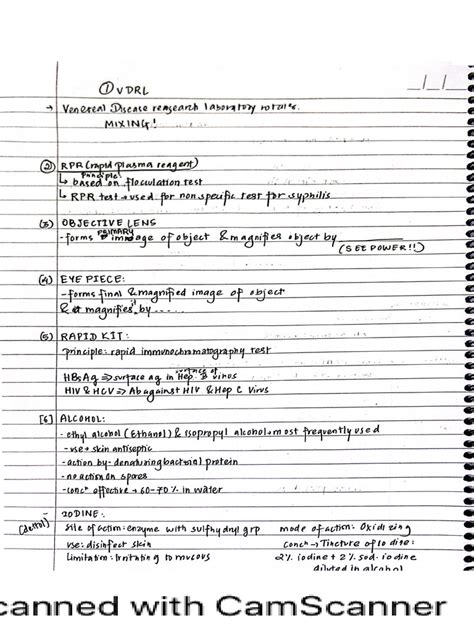 ① VDRL
_/_/_
→ Venereal Disease reasearch laboratory rotats.
MIXING!
② RPR (rapid plasma reagent)
Principle
↳ based on flocculation test
↳ RPR test → used for non specific test for syphilis
(3) OBJECTIVE LENS
-forms PRIMARY image of object & magnifies object by
(SEE POWER!!)
(4) EYE PIECE:
-forms final & magnified image of object
& magnifies by ......
(5) RAPID KIT:
principle: rapid immunochromatography test
HBsAg ⇒ surface ag in surface of Hep. B virus
HIV & HCV ⇒ Ab against HIV & Hep C Virus
[6] ALCOHOL:
- ethyl alcohol (Ethanol) & Isopropyl alcohol → most frequently used
- use → skin antiseptic
- action by - denaturing bacterial protein
- no action on spores
- concⁿ effective → 60-70% in water
IODINE:
(dettol)
Site of action: enzyme with sulfhydryl grp
mode of action: Oxidizing
use: disinfect skin
Concⁿ → Tincture of Iodine:
Limitation: Irritating to mucous
2% iodine + 2% sod. iodine
diluted in alcohol
canned with CamScanner